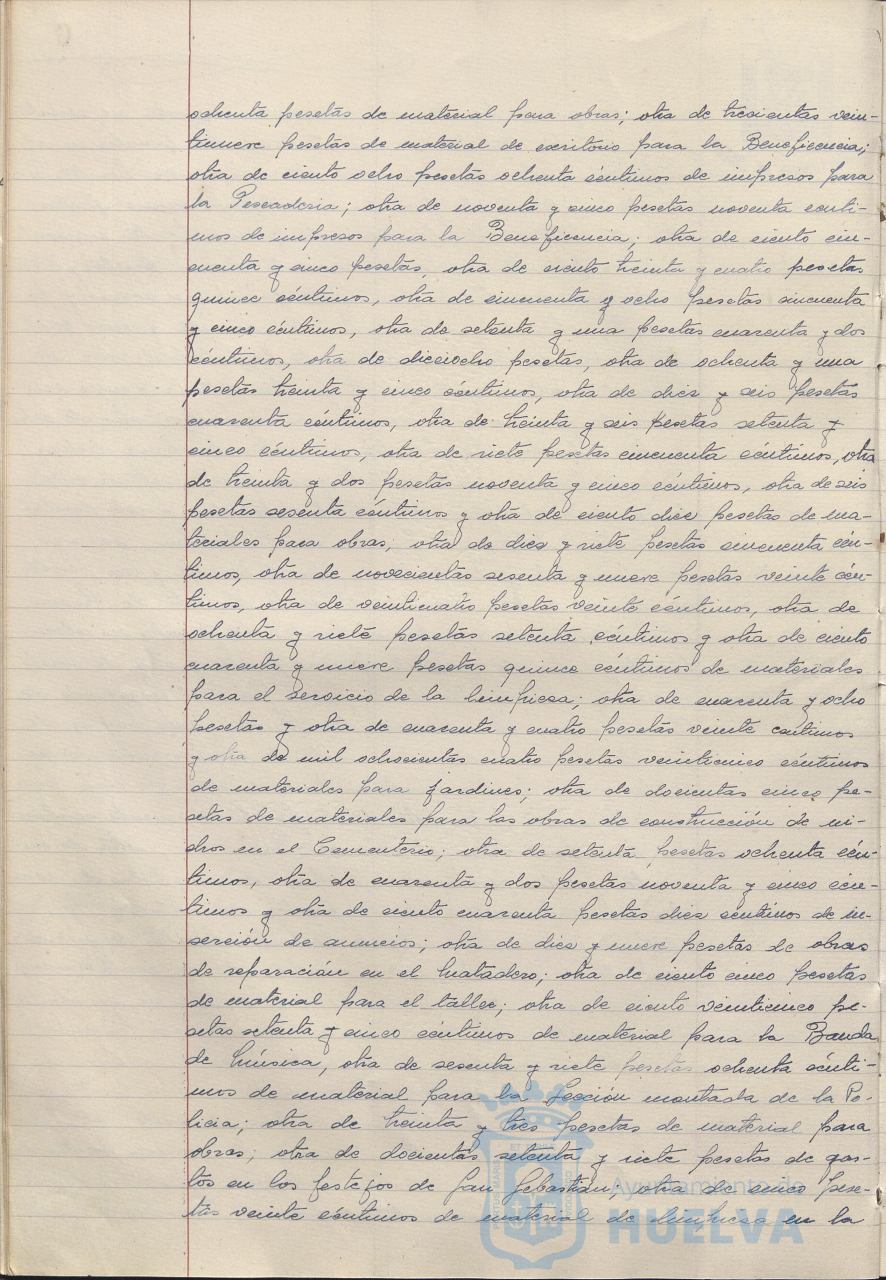 ochenta pesetas de material para obras; otra de trescientas vein-
tinueve pesetas de material de escritorio para la Beneficencia;
otra de ciento ocho pesetas ochenta céntimos de impresos para
la Pescaderia; otra de noventa y cinco pesetas noventa centi-
mos de impresos para la Beneficencia; otra de ciento cin-
cuenta y cinco pesetas, otra de ciento treinta y cuatro pesetas
quince céntimos, otra de cincuenta y ocho pesetas cincuenta
y cinco céntimos, otra de setenta y una pesetas cuarenta y dos
céntimos, otra de dieciocho pesetas, otra de ochenta y una
pesetas treinta y cinco céntimos, otra de diez y seis pesetas
cuarenta céntimos, otra de treinta y seis pesetas setenta y
cinco céntimos, otra de siete pesetas cincuenta céntimos, otra
de treinta y dos pesetas noventa y cinco céntimos, otra de seis
pesetas sesenta céntimos y otra de ciento diez pesetas de ma-
teriales para obras, otra de diez y siete pesetas cincuenta cén-
timos, otra de novecientas sesenta y nueve pesetas veinte cén-
timos, otra de veinticuatro pesetas veinte céntimos, otra de
ochenta y siete pesetas setenta céntimos y otra de ciento
cuarenta y nueve pesetas quince céntimos de materiales
para el servicio de la limpieza; otra de cuarenta y ocho
pesetas y otra de cuarenta y cuatro pesetas veinte centimos
y otra de mil ochocientas cuatro pesetas veinticinco céntimos
de materiales para jardines; otra de docientas cinco pe-
setas de materiales para las obras de construcción de ni-
chos en el Cementerio; otra de setenta pesetas ochenta cén-
timos, otra de cuarenta y dos pesetas noventa y cinco cén-
timos y otra de ciento cuarenta pesetas diez centimos de in-
serción de anuncios; otra de diez y nueve pesetas de obras
de reparación en el Matadero; otra de ciento cinco pesetas
de material para el taller; otra de ciento veinticinco pe-
setas setenta y cinco céntimos de material para la Banda
de Música, otra de sesenta y siete pesetas ochenta cénti-
mos de material para la Sección montada de la Po-
licia; otra de treinta y tres pesetas de material para
obras; otra de docientas setenta y siete pesetas de gas-
tos en los festejos de San Sebastián, otra de cinco pese-
tas veinte céntimos de material de limpieza en la
Ayuntamiento de
HUELVA